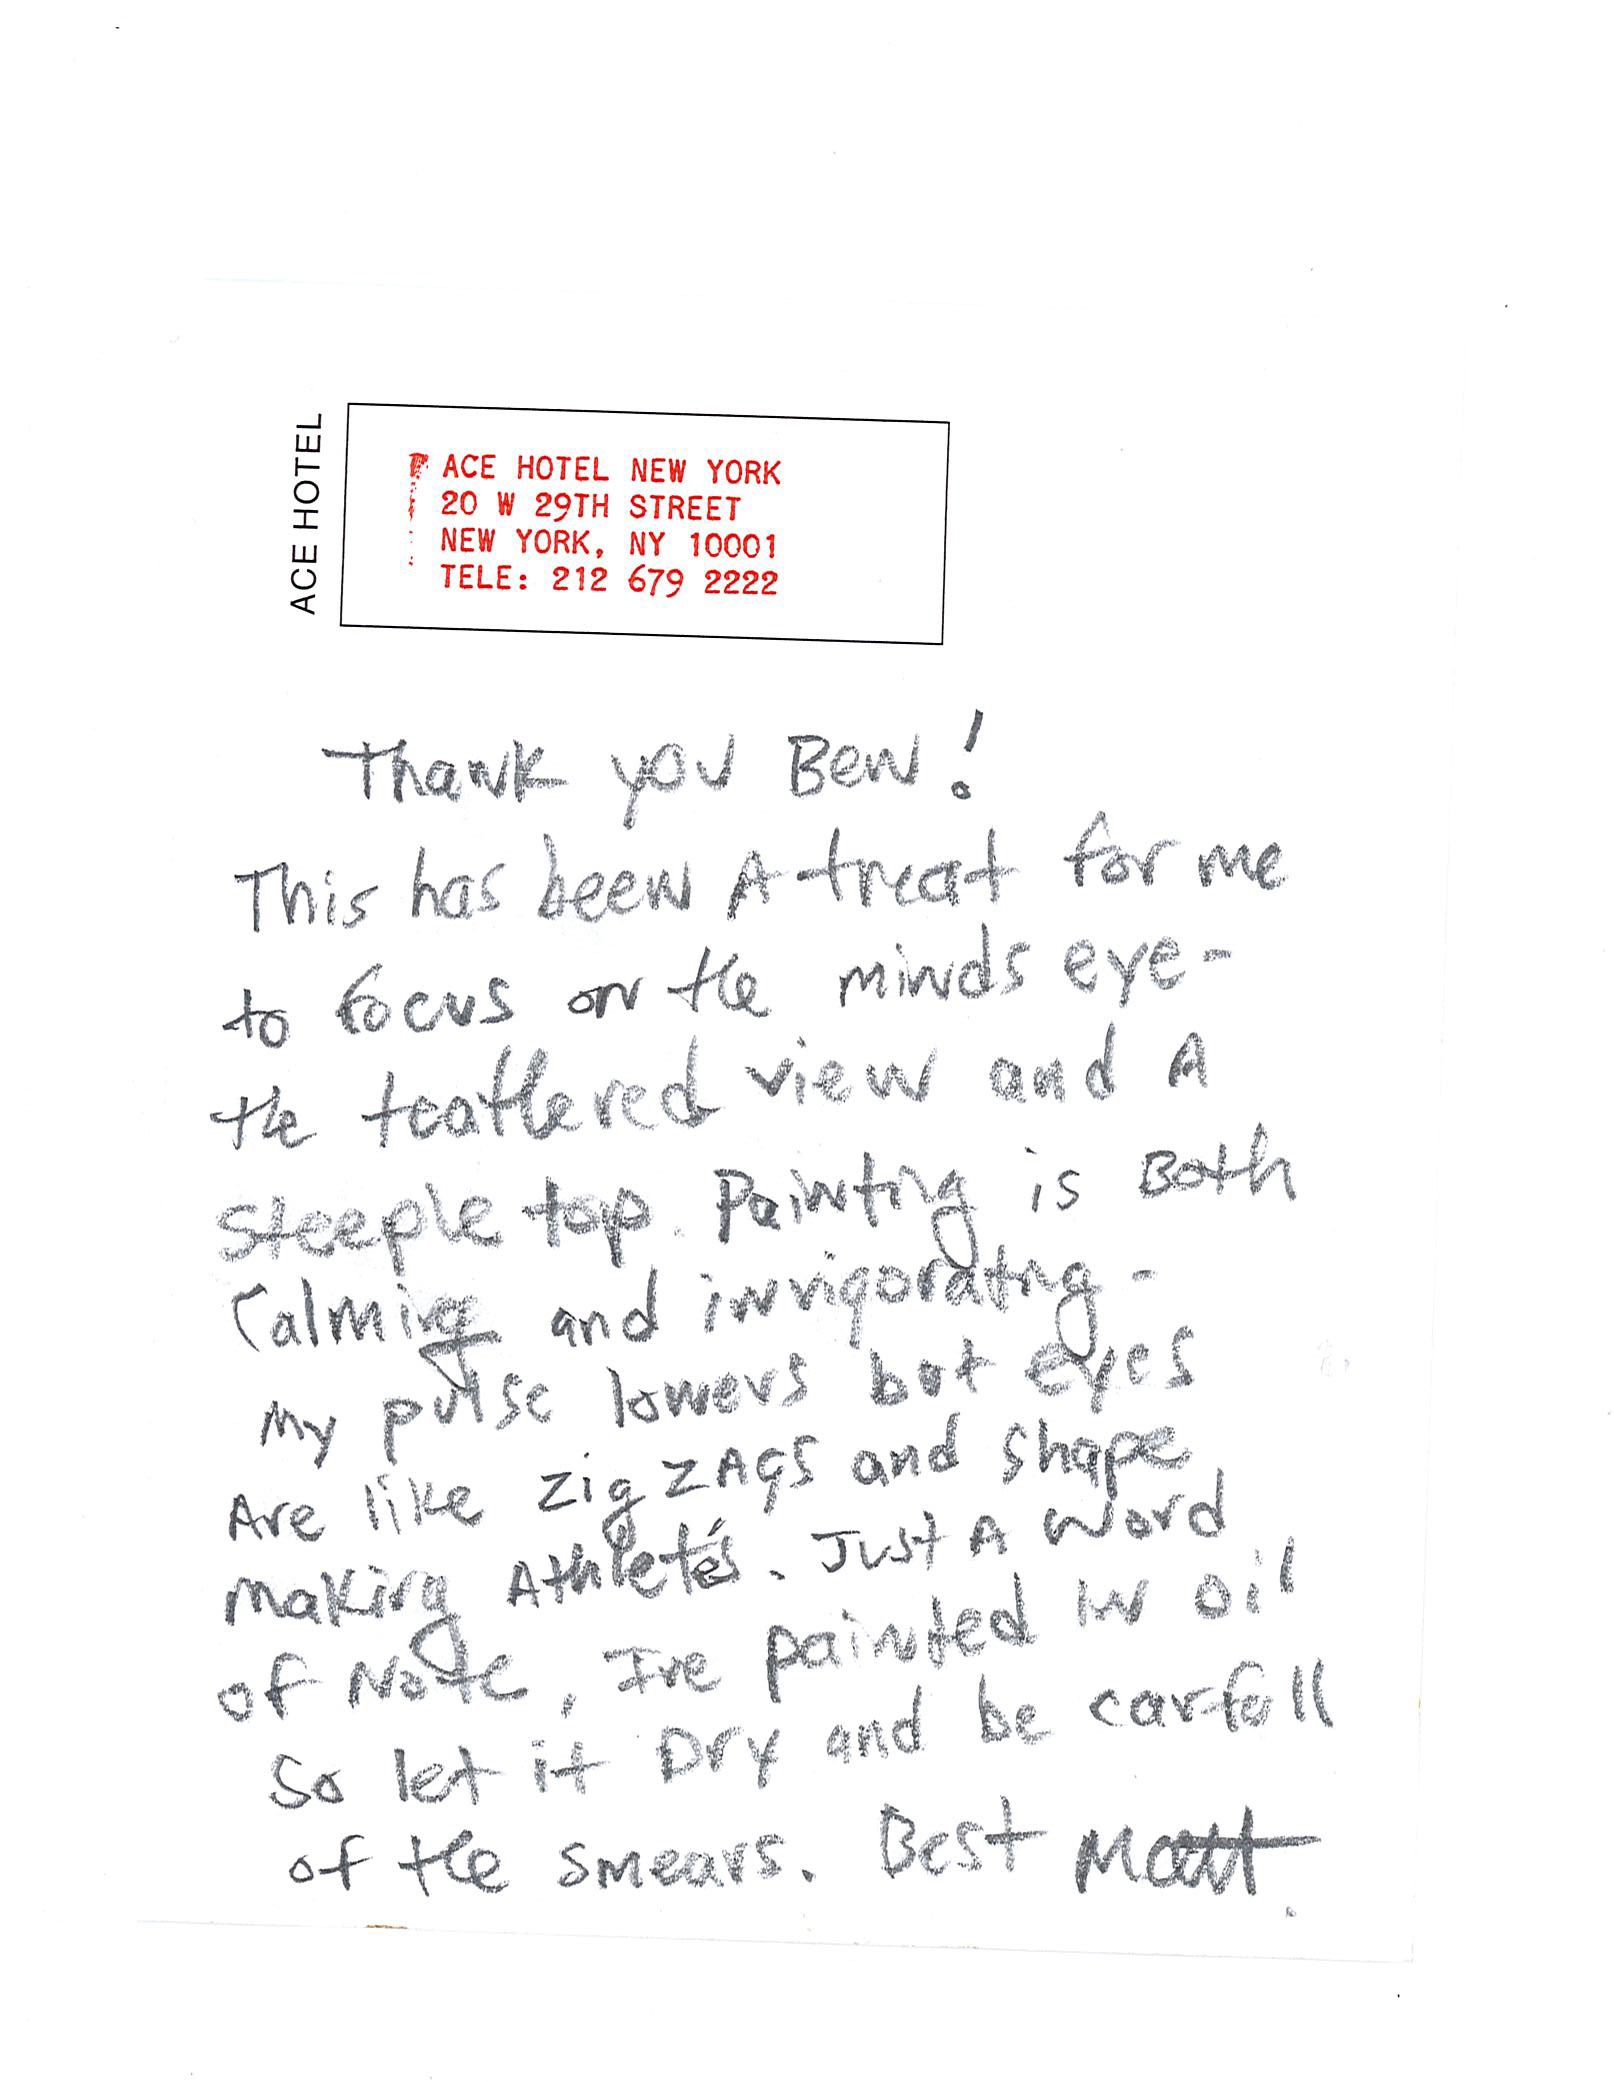 ACE HOTEL
ACE HOTEL NEW YORK
20 W 29TH STREET
NEW YORK, NY 10001
TELE: 212 679 2222
Thank you Ben!
This has been A treat for me
to focus on the minds eye-
the teathered view and A
steeple top. Painting is Both
Calming and invigorating -
My pulse lowers but eyes
Are like zig ZAGS and shape
making Athleté's. Just A word
of Note, Ive painted in oil
So let it Dry and be carfull
of the smears. Best Matt.